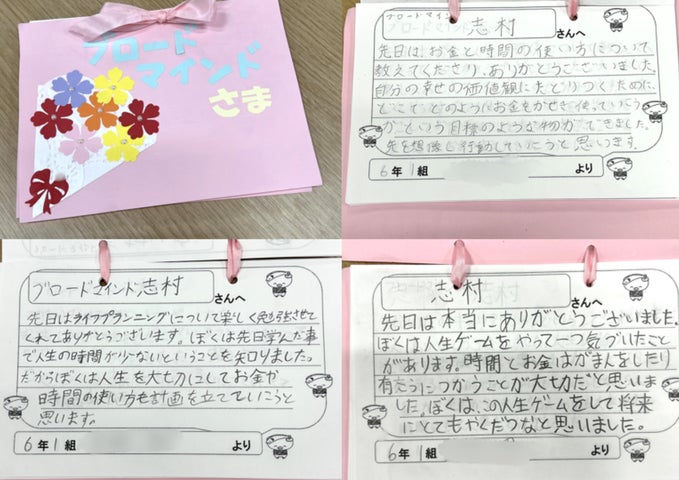 ブロード
マインド
さま
ブロードマインド志村 さんへ
先日は、お金と時間の使い方について、
教えてくださり、ありがとうございました。
自分の幸せの価値観にたどりつくために、
どこでどのようにお金をかせぎ使っていこう
かという目標のような物ができました。
先を想像し行動していこうと思います。
6年1組 より
ブロードマインド志村 さんへ
先日はライフプランニングについて楽しく勉強させて
くれてありがとうございます。ぼくは先日学んだ事
で人生の時間が少ないということを知りました。
だからぼくは人生を大切にしてお金や
時間の使い方を計画を立てていこうと
思います。
6年1組 より
志村 さんへ
先日は本当にありがとうございました。
ぼくは人生ゲームをやって一つ気づいたこと
があります。時間とお金はがまんをしたり
有こうにつかうことが大切だと思いま
した。ぼくは、この人生ゲームをして将来
にとてもやくだつなと思いました。
6年1組 より